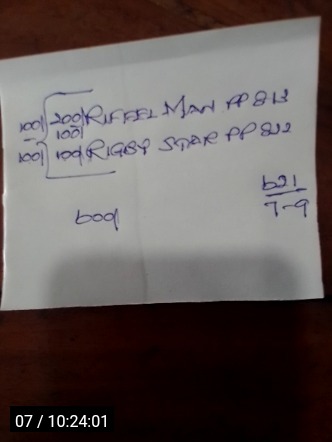 100/ 200/ RIFFEL MAN PP 813
100/
100/ 100/ RIGBY STAR PP 822
621
7-9
600/
07 / 10:24:01